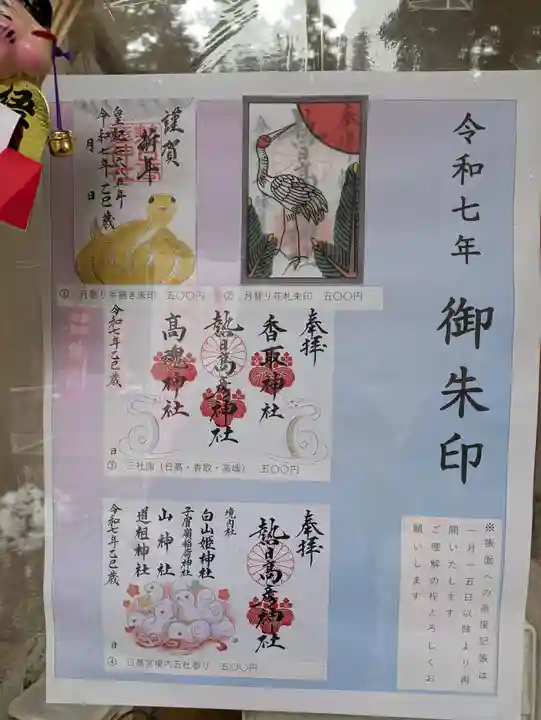 令和七年
御朱印
謹賀
新年
皇紀二六八五年
令和七年 乙巳歳
月 日
① 月替り手描き朱印 五〇〇円
② 月替り花札朱印 五〇〇円
奉拝
香取神社
熱日高彦神社
高魂神社
令和七年乙巳歳
日
③ 三社詣(日高・香取・高魂) 五〇〇円
奉拝
熱日高彦神社
境内社
白山姫神社
子眉嶺稲荷神社
山神社
道祖神社
令和七年乙巳歳
日
④ 日高宮境内五社参り 五〇〇円
※帳面への直接記帳は
一月一五日以降より再
開いたします
ご理解の程よろしくお
願いします